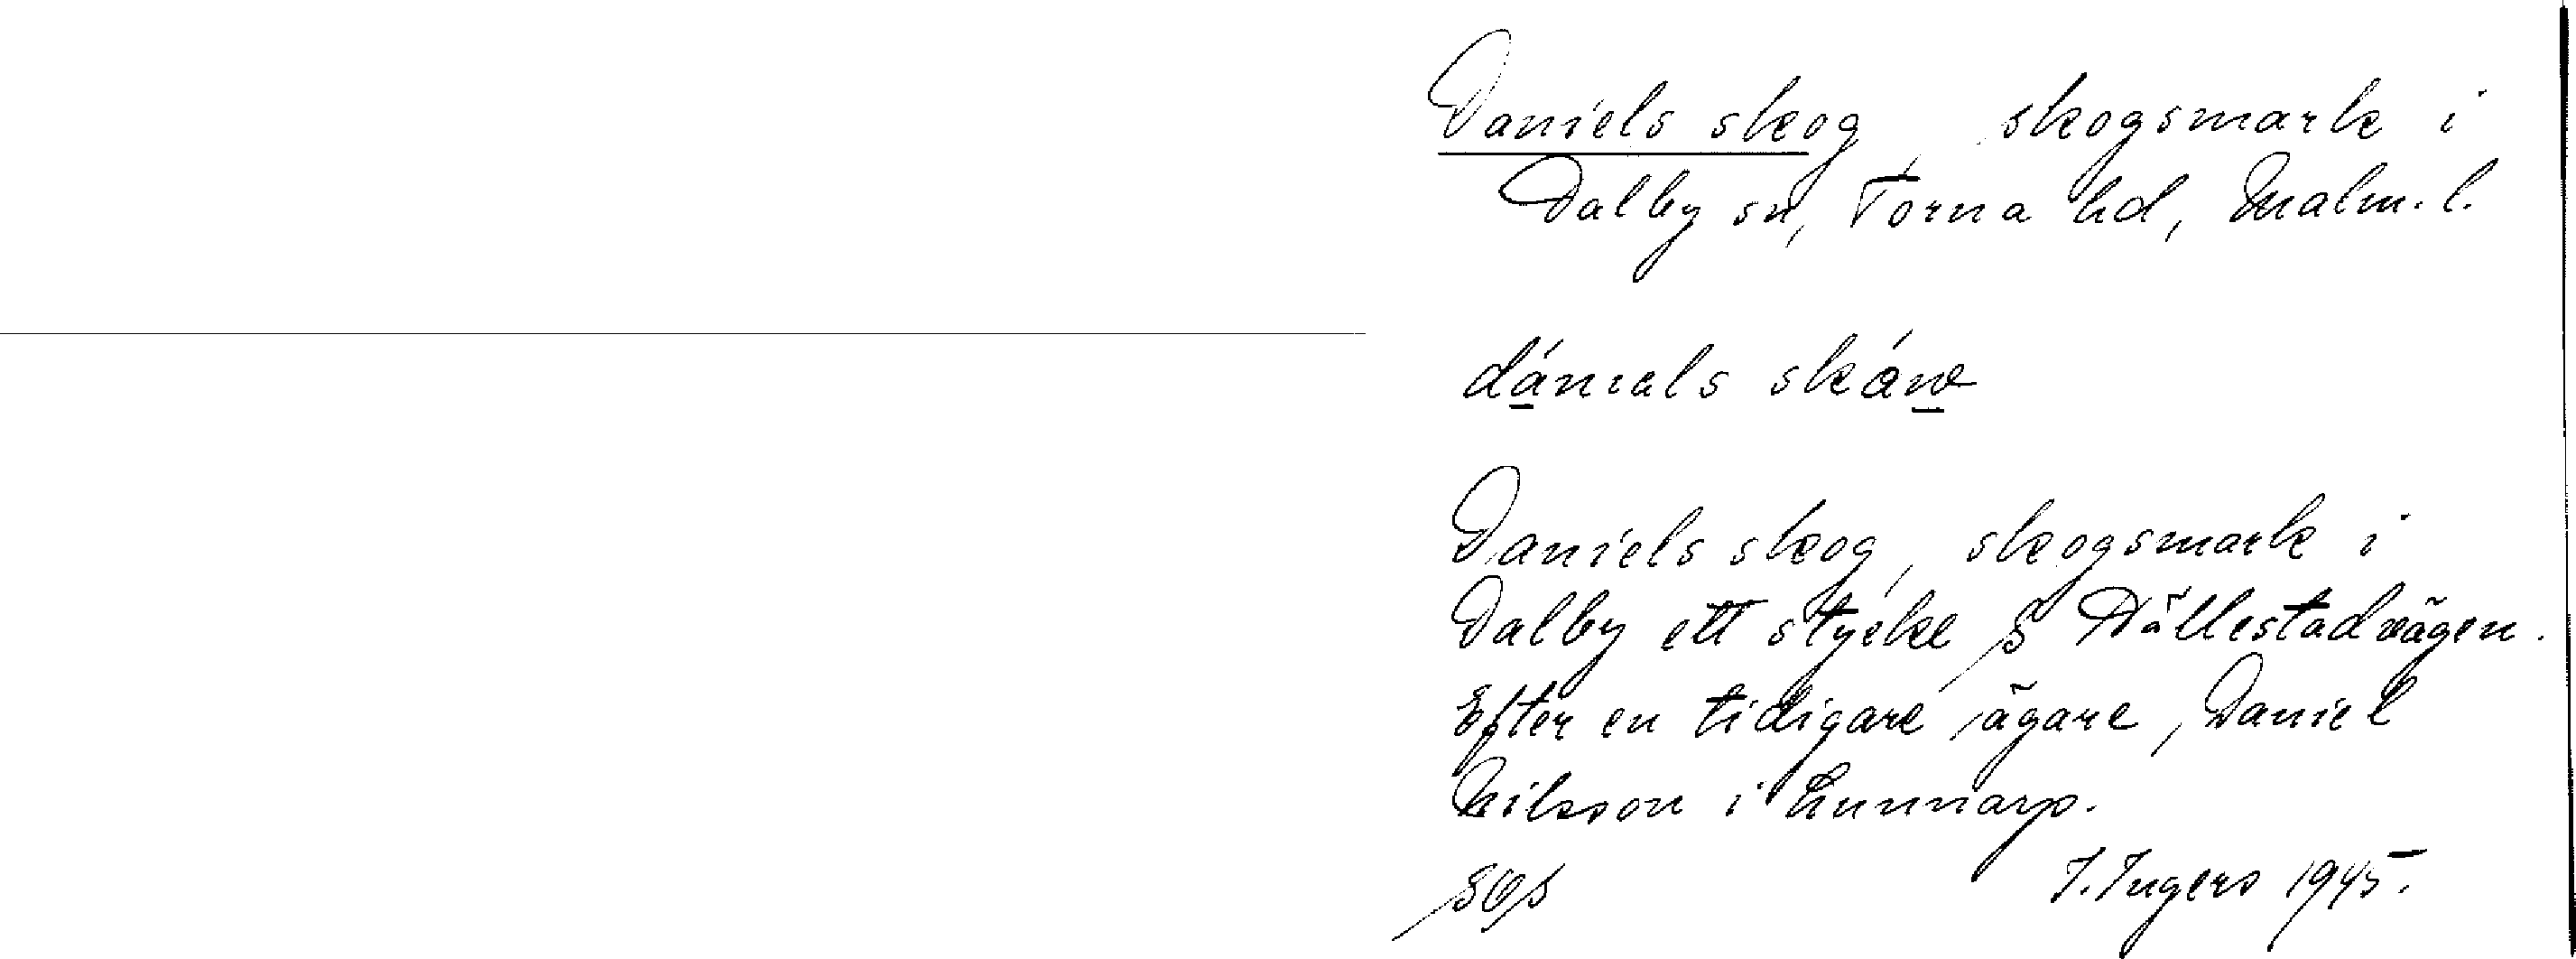 Daniels skog, skogsmark i
Dalby sn, Torna hd, Malm. l.
dánials skáw
Daniels skog, skogsmark i
Dalby ett stycke S Hällestadvägen.
Efter en tidigare ägare, Daniel
Nilsson i Lunnarp.
I. Ingers 1945.